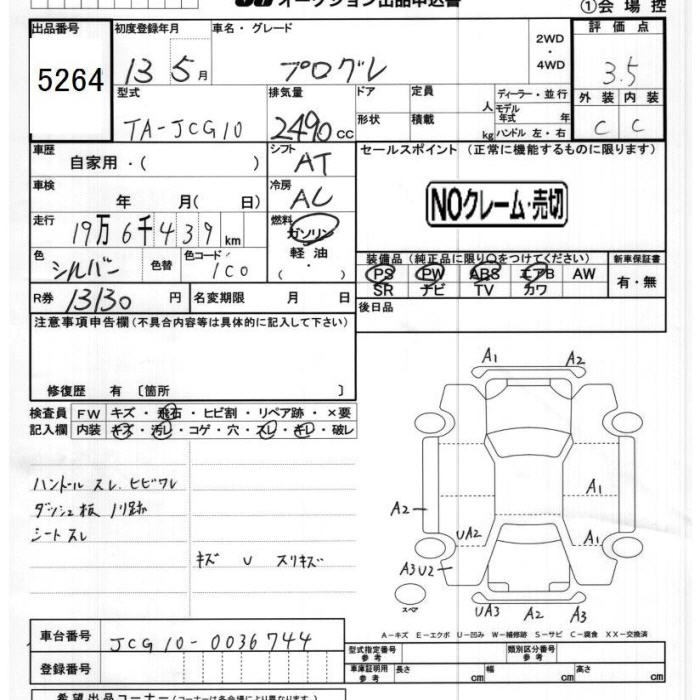 オークション出品申込書 ①会場控
出品番号 初度登録年月 車名・グレード 2WD・4WD 評価点
5264 13 5月 プログレ 3.5
型式 排気量 ドア 定員 人 ディーラー・並行 外装 内装
TA-JCG10 2490cc 形状 積載 kg モデル年式 年 ハンドル 左・右 C C
車歴 自家用・( ) シフト AT セールスポイント (正常に機能するものに限ります)
車検 年 月( 日) 冷房 AC NOクレーム・売切
走行 19万6千439km 燃料 ガソリン 軽油・( ・ )
色 シルバー 色替 色コード 1C0 装備品(純正品に限り○をつけてください) 新車保証書
PS PW ABS エアB AW 有・無
SR ナビ TV カワ
R券 13130円 名変期限 月 日 後日品
注意事項申告欄(不具合内容等は具体的に記入して下さい)
修復歴 有〔箇所 〕
検査員 FW キズ・飛石・ヒビ割・リペア跡・×要
記入欄 内装 キズ・汚レ・コゲ・穴・スレ・キレ・破レ
ハンドル スレ ヒビワレ
ダッシュ板 ノリ跡
シート スレ
キズ U スリキズ
A1 A2
A1
A2
UA2 A1
A3U2
スペア
UA3 A2 A3
A-キズ E-エクボ U-凹み W-補修跡 S-サビ C-腐食 XX-交換済
車台番号 JCG10-0036744 型式指定番号 参考 類別区分番号 参考
登録番号 車庫証明用 参考 長さ cm 幅 cm 高さ cm
希望出品コーナー(コーナーは各会場により異なります)